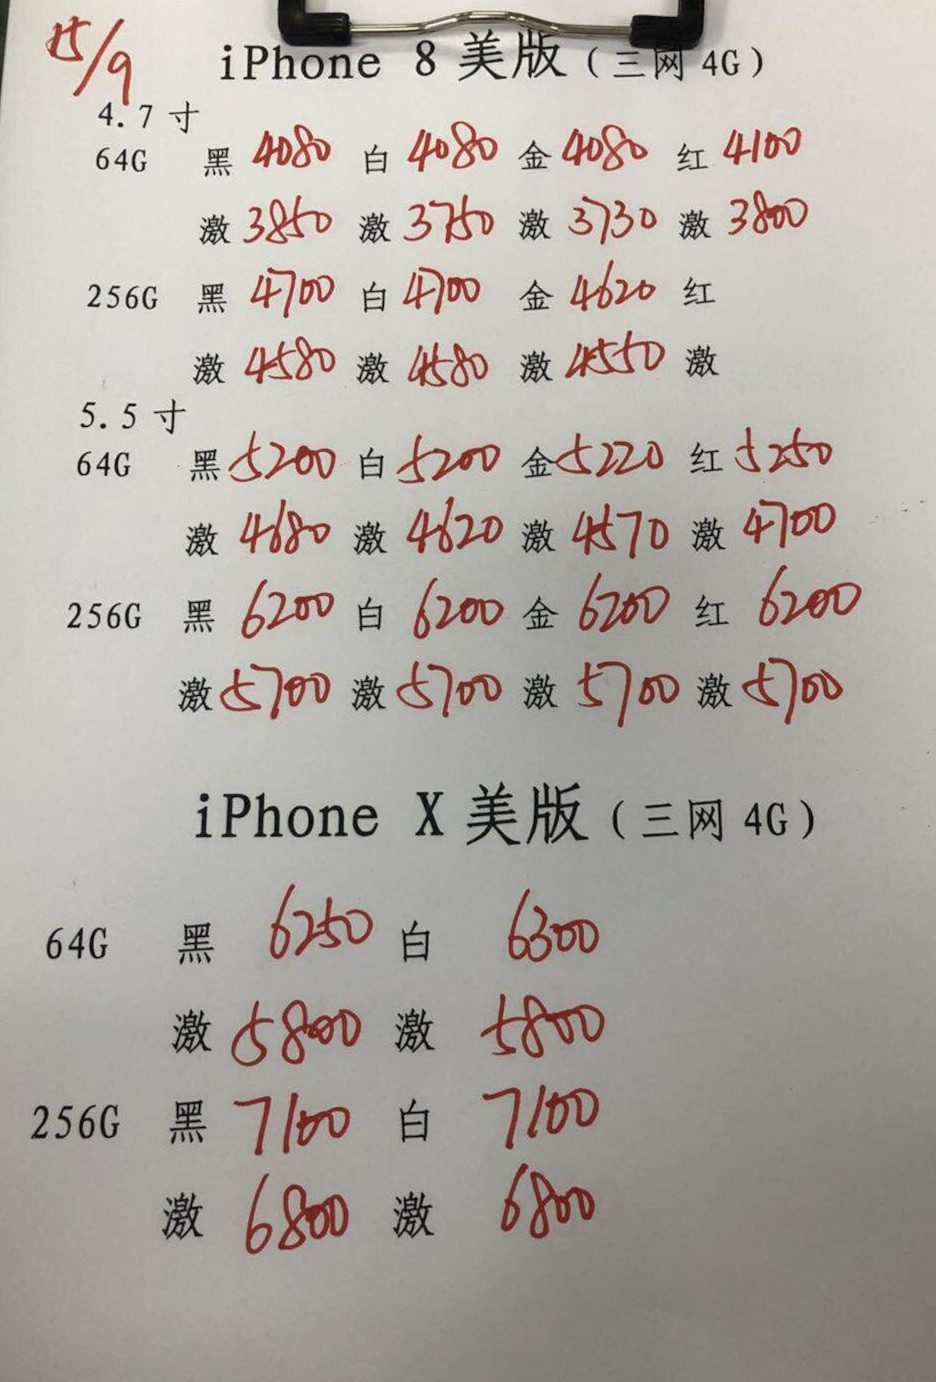 15/9
iPhone 8 美版（三网 4G）
4.7 寸
64G 黑 4080 白 4080 金 4080 红 4100
激 3850 激 3750 激 3730 激 3800
256G 黑 4700 白 4700 金 4620 红
激 4580 激 4580 激 4550 激
5.5 寸
64G 黑 5200 白 5200 金 5220 红 5250
激 4680 激 4620 激 4570 激 4700
256G 黑 6200 白 6200 金 6200 红 6200
激 5700 激 5700 激 5700 激 5700
iPhone X 美版（三网 4G）
64G 黑 6250 白 6300
激 5800 激 5800
256G 黑 7100 白 7100
激 6800 激 6800